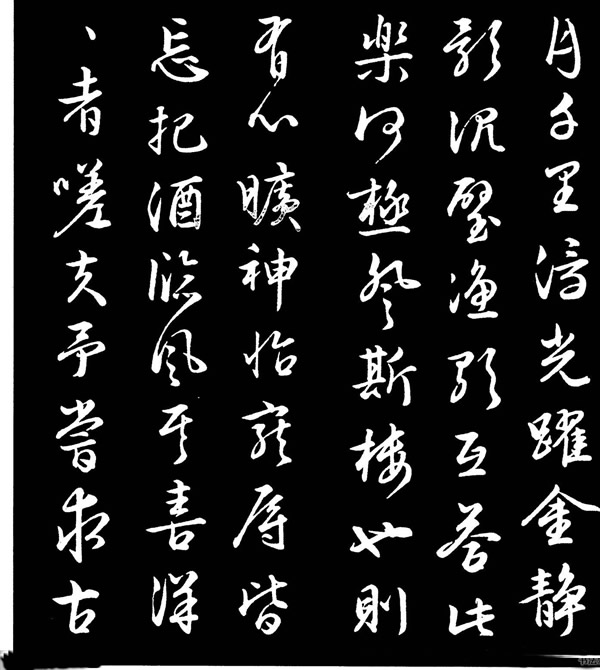 月千里浮光躍金静
影沉璧渔歌互答此
樂何極登斯楼也則
有心曠神怡寵辱皆
忘把酒臨風其喜洋
丶者嗟夫予嘗求古